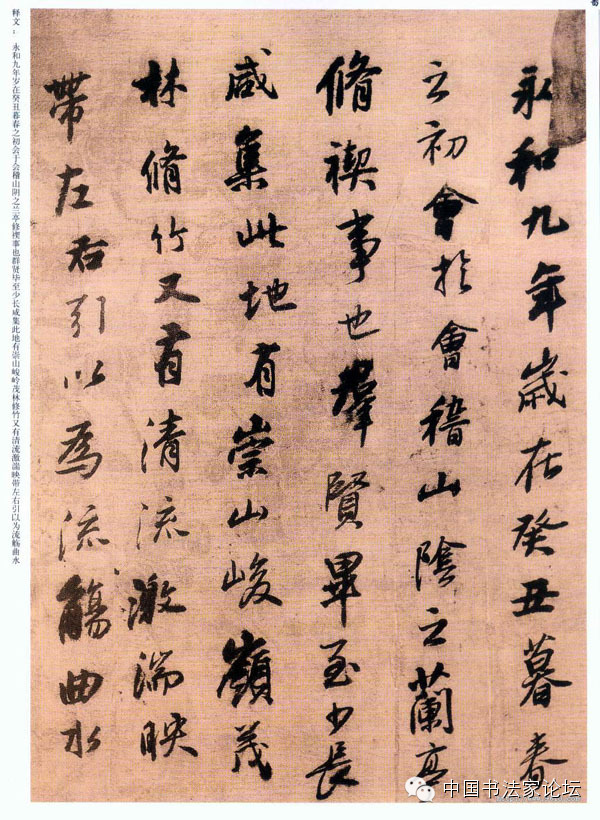 永和九年歲在癸丑暮春
之初會於會稽山陰之蘭亭
脩禊事也羣賢畢至少長
咸集此地有崇山峻嶺茂
林脩竹又有清流激湍映
帶左右引以為流觴曲水
释文：永和九年岁在癸丑暮春之初会于会稽山阴之兰亭修禊事也群贤毕至少长咸集此地有崇山峻岭茂林修竹又有清流激湍映带左右引以为流觞曲水
中国书法家论坛